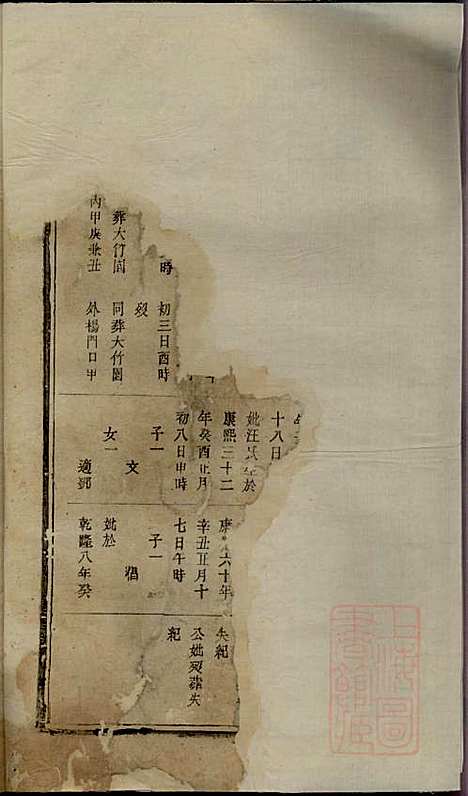 時
初三日酉時
歿
葬大竹園
同葬大竹園
丙甲庚兼丑
外楊門口甲
十八日
妣汪氏生於
康熙三十二
年癸酉正月
初八日申時
子一
文
女一
適鄧
康熙六十年
辛丑正月十
七日午時
子一
妣於
乾隆八年癸
失紀
公妣歿葬失
紀